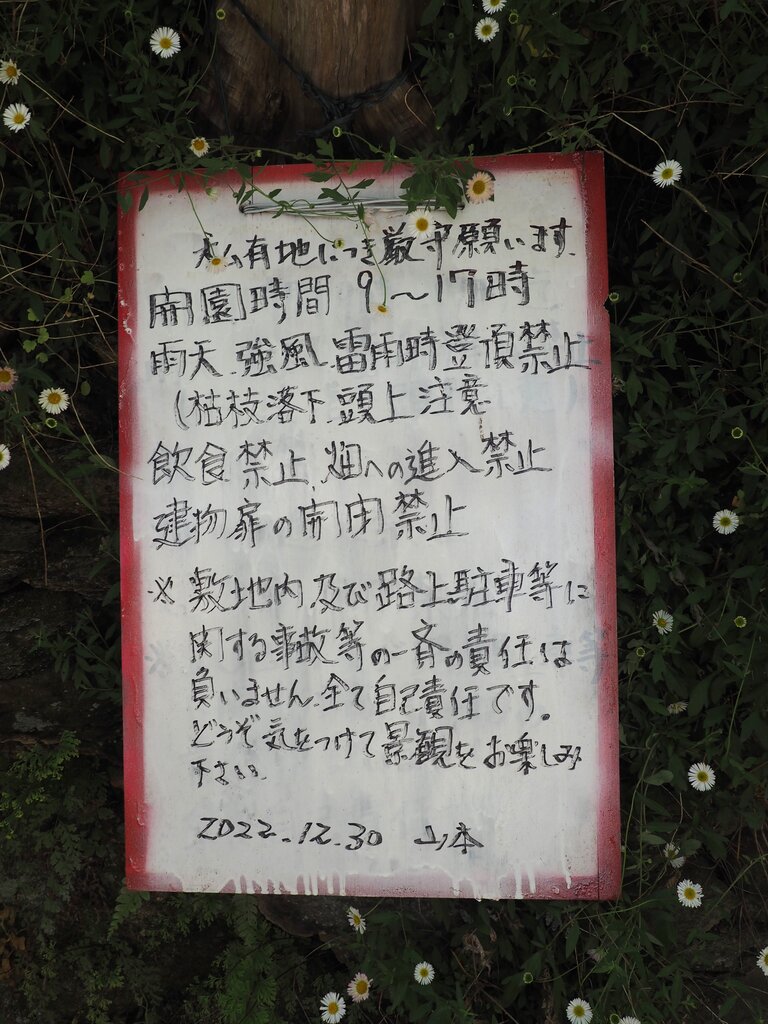 私有地につき厳守願います.
開園時間 9〜17時
雨天 強風 雷雨時登頂禁止
(枯枝落下 頭上注意
飲食禁止 畑への進入禁止
建物扉の開閉禁止
※ 敷地内及び路上駐車等に
関する事故等の一斉の責任は
負いません 全て自己責任です。
どうぞ気をつけて景観をお楽しみ
下さい.
2022.12.30 山本